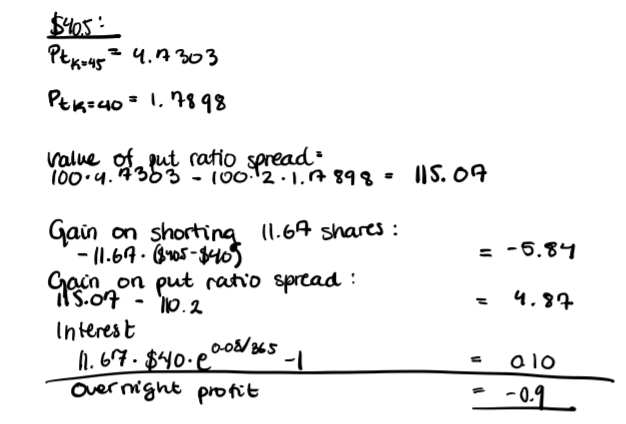 $40.5:
Pt K=45 = 4.7303
Pt K=40 = 1.7898
value of put ratio spread =
100·4.7303 - 100·2·1.7898 = 115.07
Gain on shorting 11.67 shares:
-11.67·($40.5-$40) = -5.84
Gain on put ratio spread:
115.07 - 110.2 = 4.87
Interest
11.67·$40·e^0.08/365 -1 = 0.10
Overnight profit = -0.9